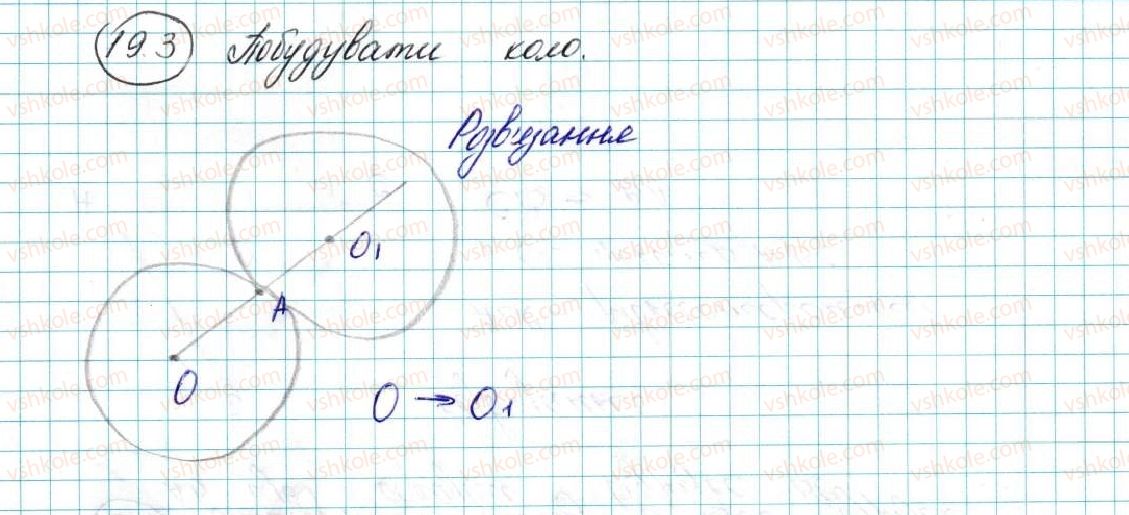 19.3 Побудувати коло.
Розв'язання
O₁
A
O
O → O₁
vshkole.com